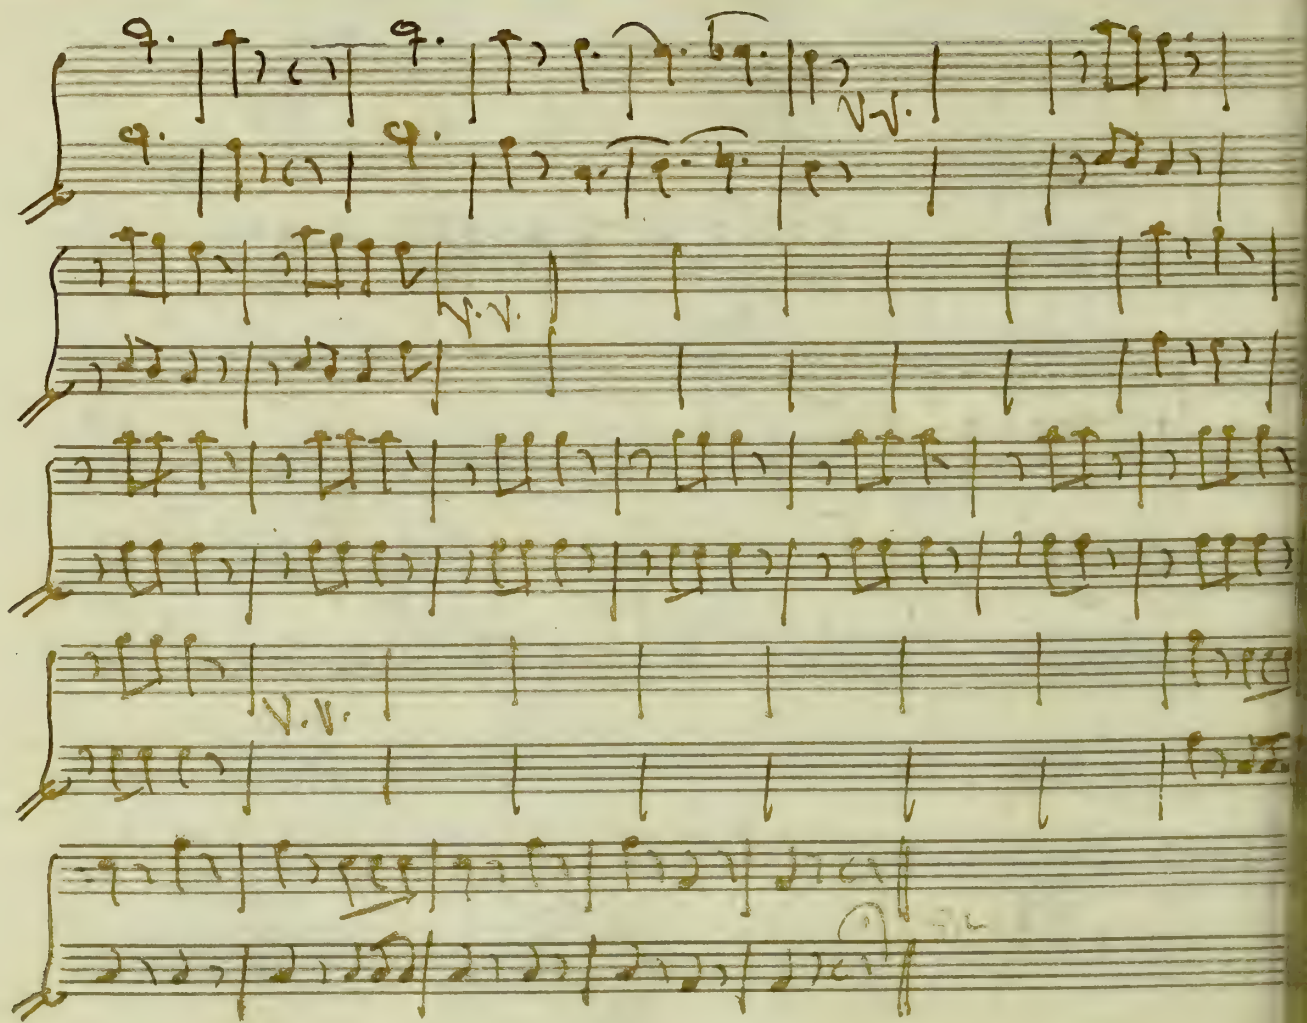 V.V.
V.V.
V.V.